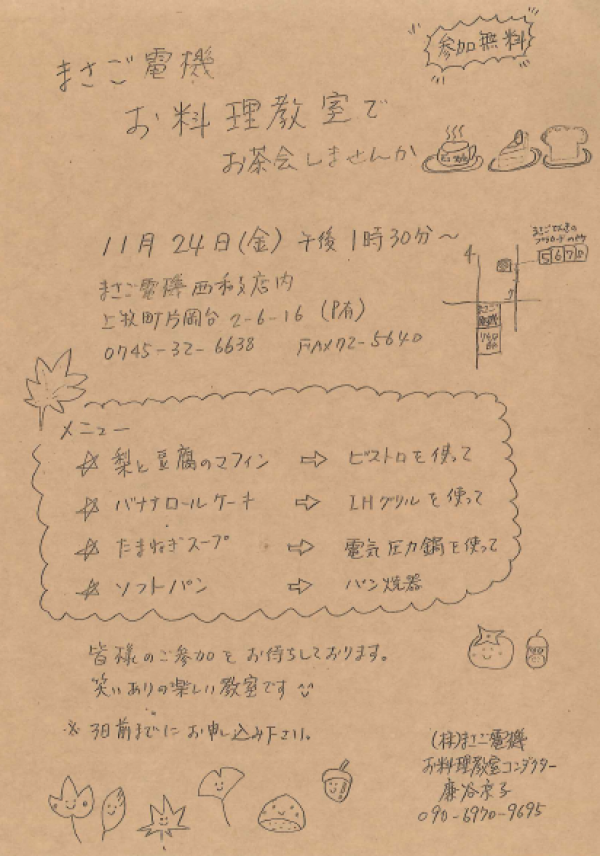 参加無料
まさご電機
お料理教室で
お茶会しませんか
11月24日(金) 午後1時30分～
まさご電機西和支店内
上牧町片岡台 2-6-16 (P有)
0745-32-6638 FAX72-5640
まさごでんきの
5 6 7 8
まさご
電機
メニュー
☆ 梨と豆腐のマフィン ⇨ ビストロを使って
☆ バナナロールケーキ ⇨ IHグリルを使って
☆ たまねぎスープ ⇨ 電気圧力鍋を使って
☆ ソフトパン ⇨ パン焼器
皆様のご参加をお待ちしております。
笑いありの楽しい教室です
※ 3日前までにお申し込み下さい。
(株)まさご電機
お料理教室コンダクター
090-6970-9695